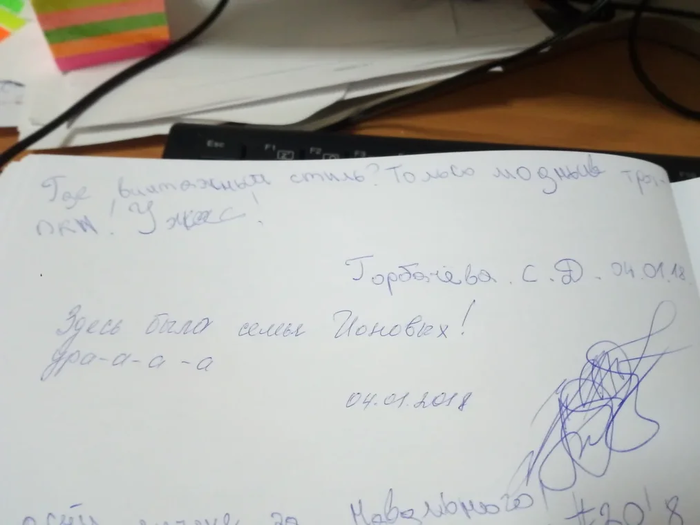 Esc F1 F2
Где винтажный стиль? Только модные тряп-
пки! Ужас!
Горбачёва. С. Д. 04.01.18
Здесь была семья Ионовых!
Ура-а-а-а
04.01.2018
за Навального! #2018